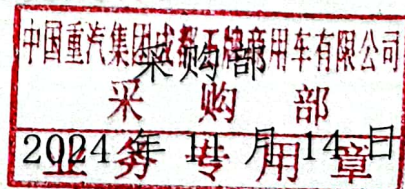 中国重汽集团成都王牌商用车有限公司
采购部
采购部
2024年11月14日
业务专用章